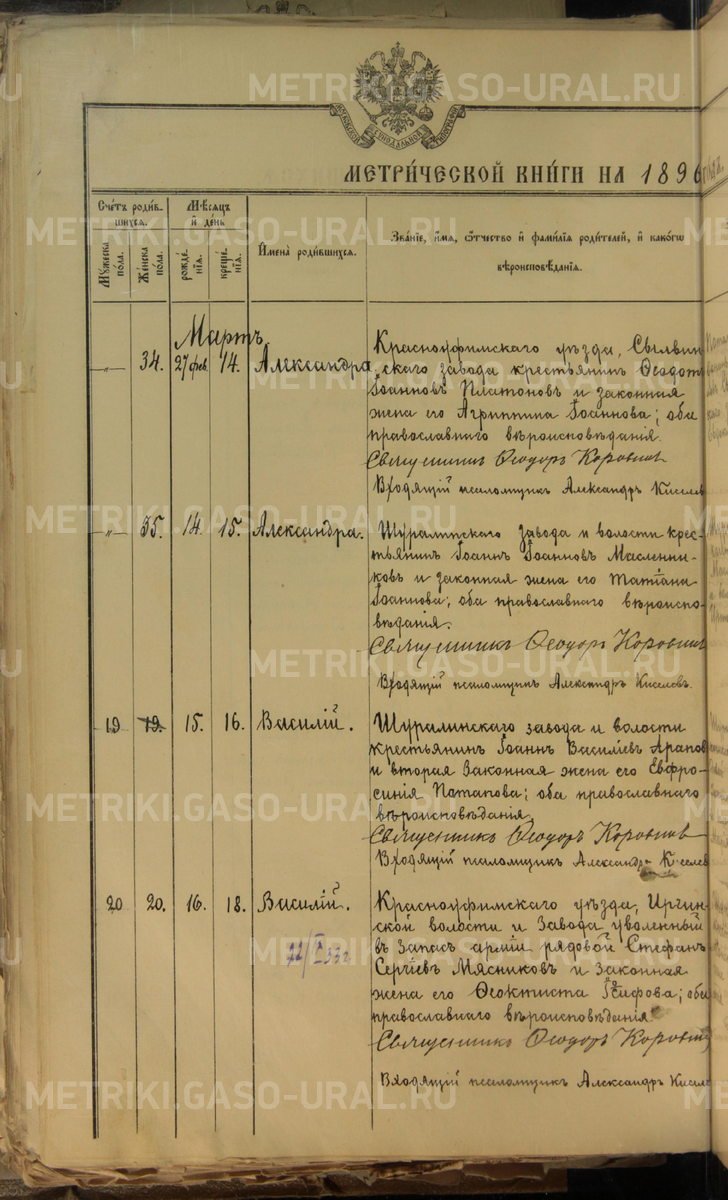 METRIKI.GASO-URAL.RU
МОСКОВСКОЙ СИНОДАЛЬНОЙ ТИПОГРАФІИ
МЕТРИ́ЧЕСКОЙ КНИ́ГИ НА 1896
Сче́тъ роди́в-
шихся.
Мѣ́сяцъ
и҆ де́нь
И҆мена̀ роди́вшихся.
Зва́ніе, и҆́мя, ѻ҆́тчество и҆ фами́лія роди́телей, и҆ како́гѡ
вѣроисповѣ́данія.
Мꙋ́жеска по́ла.
Же́нска по́ла.
рожде́нія.
креще́нія.
Мартъ
-"- 34. 27 фев. 14. Александра
Красноуфимскаго уѣзда, Сылвин-
скаго завода крестьянинъ Ѳеодотъ
Іоанновъ Платоновъ и законная
жена его Агриппина Іоаннова; оба
православнаго вѣроисповѣданія.
Священникъ Ѳеодоръ Коровинъ
Входящій псаломщикъ Александръ Киселев
-"- 35. 14. 15. Александра.
Шуралинскаго завода и волости крес-
тьянинъ Іоаннъ Іоанновъ Масленни-
ковъ и законная жена его Татіана
Іоаннова; оба православнаго вѣроиспо-
вѣданія.
Священникъ Ѳеодоръ Коровинъ
Входящій псаломщикъ Александръ Киселевъ.
19 19. 15. 16. Василій.
Шуралинскаго завода и волости
крестьянинъ Іоаннъ Василіевъ Арапов
и вторая законная жена его Евфро-
синія Потапова; оба православнаго
вѣроисповѣданія
Священникъ Ѳеодоръ Коровинъ
Входящій псаломщикъ Александръ Киселев
20 20. 16. 18. Василій.
Красноуфимскаго уѣзда, Иргин-
ской волости и завода уволенный
въ запасъ арміи рядовой Стефанъ
Сергіевъ Мясниковъ и законная
жена его Ѳеоктиста Іосифова; оба
православнаго вѣроисповѣданія
Священникъ Ѳеодоръ Коровин
Входящій псаломщикъ Александръ Кисел